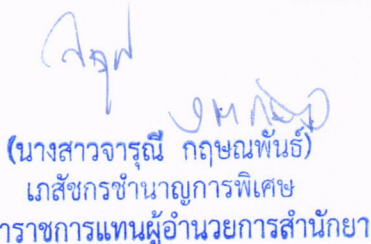 (นางสาวจารุณี กฤษณพันธ์)
เภสัชกรชำนาญการพิเศษ
าราชการแทนผู้อำนวยการสำนักยา